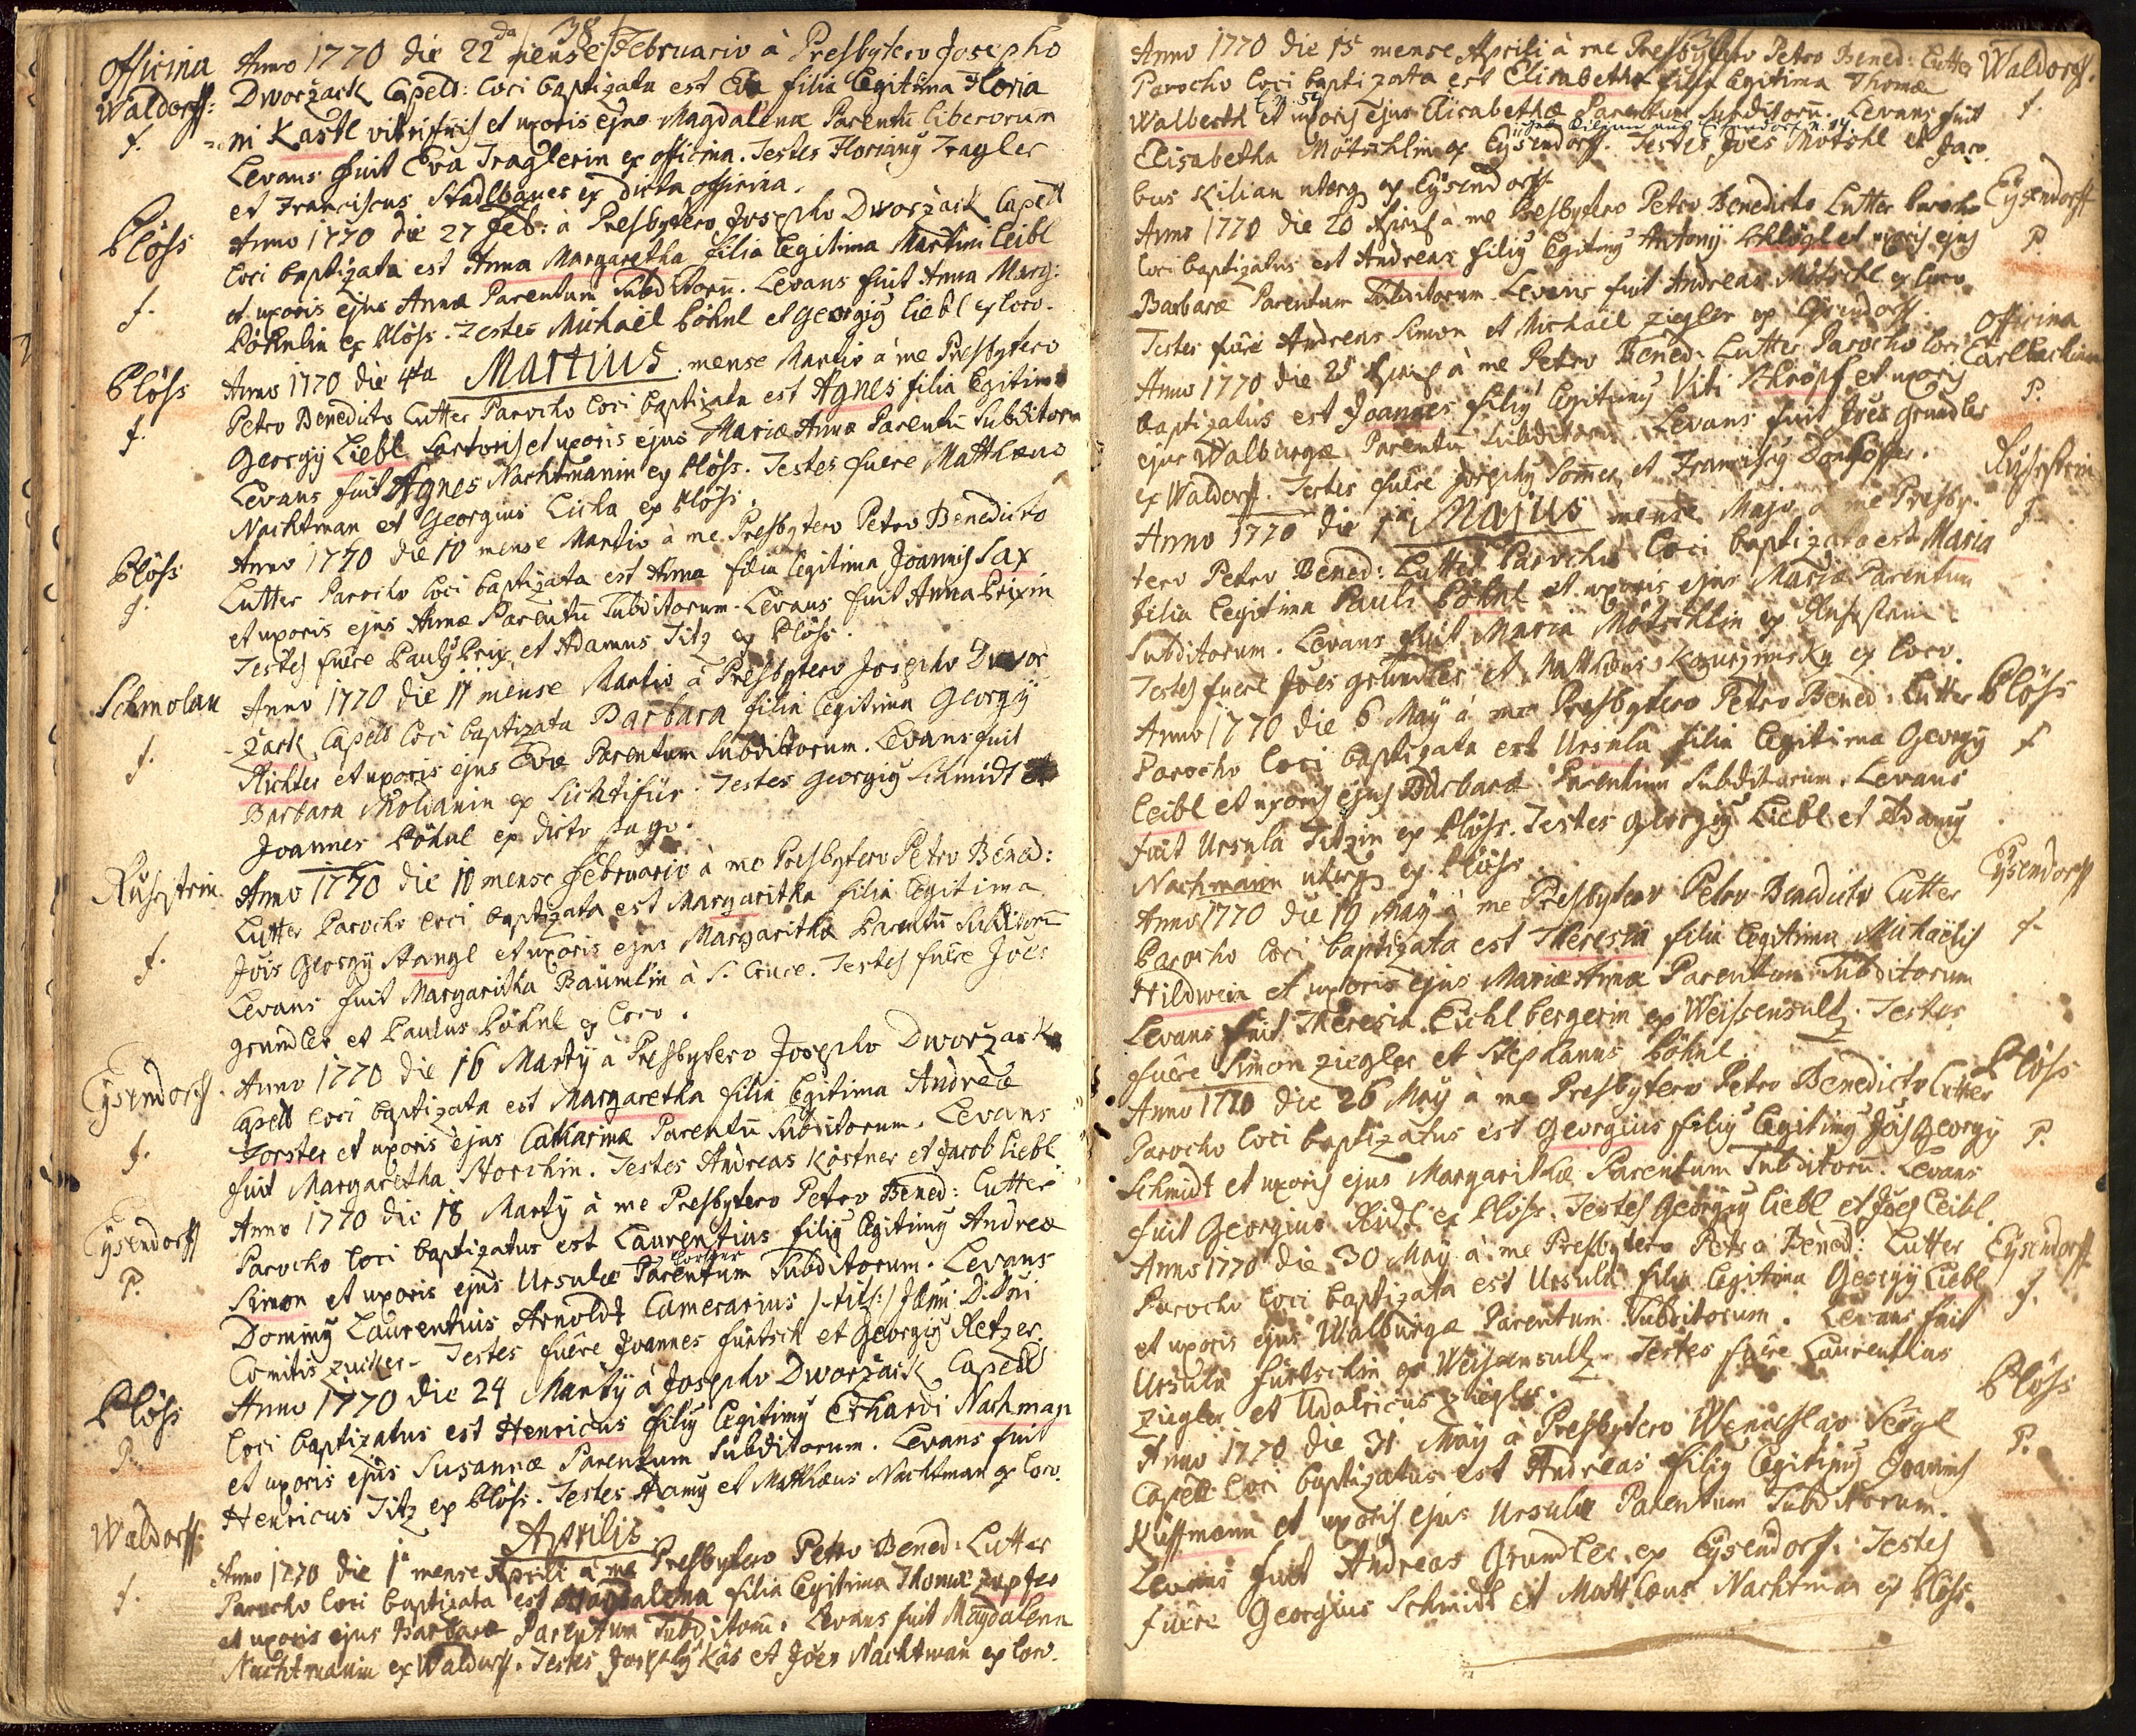 38
officina Anno 1770 die 22da mense Februario à Presbytero Josepho
Waldorff: Dworzack Capell: loci baptizata est Eva filia legitima Floria
f. =ni Kastl vitrifricis et uxoris ejus Magdalenæ Parentū liberorum
Levans fuit Eva Traglerin ex officina. Testes Florianꝰ Tragler
et Franciscus Stadlbauer ex dicta officina.
Plöss Anno 1770 die 27 Feb: à Presbytero Josepho Dworzack Capell
loci baptizata est Anna Margaretha filia legitima Martini Leibl
f. et uxoris ejus Annæ Parentum Subditorū. Levans fuit Anna Marg:
Pöhnlin ex Plöss. Testes Michaël Pöhnl et Georgiꝰ Liebl ex loco.
Plöss Anno 1770 die 4ta Martius mense Martio à me Presbytero
f. Petro Benedicto Lutter Parocho loci baptizata est Agnes filia legitima
Georgÿ Liebl Sartoris et uxoris ejus Mariæ Annæ Parentū Subditorū
Levans fuit Agnes Nachtmanin ex Plöss. Testes fuere Matthæus
Nachtman et Georgius Licha ex Plöss.
Plöss Anno 1770 die 10 mense Martio à me Presbytero Petro Benedicto
f. Lutter Parocho loci baptizata est Anna filia legitima Joannis Sax
et uxoris ejus Annæ Parentū Subditorum. Levans fuit Anna Prixin
Testes fuêre Paulꝰ Prix et Adamus Titz ex Plöss.
Schmolau Anno 1770 die 11 mense Martio à Presbytero Josepho Dwor
-zack Capell loci baptizata Barbara filia legitima Georgÿ
f. Richter et uxoris ejus Evæ Parentum Subditorum. Levans fuit
Barbara Moldanin ex Lichtifür. Testes Georgiꝰ Schmidt et
Joannes Pöhnl ex dicto pago.
Ruhstein Anno 1770 die 10 mense Februario à me Presbytero Petro Bened:
Lutter Parocho loci baptizata est Margaritha filia legitima
f. Jōis Georgÿ Stangl et uxoris ejus Margarithæ Parentū Subditorū
Levans fuit Margaritha Bäumlin à S. Cruce. Testes fuêre Jōes
Grundler et Paulus Pöhnl ex loco.
Eÿsendorff. Anno 1770 die 16 Martÿ à Presbytero Josepho Dworzack
Capell loci baptizata est Margaretha filia legitima Andreæ
f. Forster et uxoris ejus Catharinæ Parentū Subditorum. Levans
fuit Margaretha Storchin. Testes Andreas Kostner et Jacob Liebl
Eÿsendorff Anno 1770 die 18 Martÿ à me Presbytero Petro Bened: Lutter
P. Parocho loci baptizatus est Laurentius filiꝰ legitimꝰ Andreæ
Simon et uxoris ejus Ursulæ Parentum Subditorum. Levans
Dominꝰ Laurentius Arnoldt Camerarius /:titl:/ Illmi D: Dni
Comitis Zucker. Testes fuêre Joannes Fürtsch et Georgiꝰ Retzer.
Plöss Anno 1770 die 24 Martÿ à Josepho Dworzack Capell
P. loci baptizatus est Henricus filiꝰ legitimꝰ Erhardi Nachman
et uxoris ejus Susannæ Parentum Subditorum. Levans fuit
Henricus Titz ex Plöss. Testes Adamꝰ et Matthæus Nachtman ex loco.
Aprilis
Waldorff. Anno 1770 die 1ª mense Aprili à me Presbytero Petro Bened: Lutter
f. Parocho loci baptizata est Magdalena filia legitima Thomæ Zupfer
et uxoris ejus Barbaræ Parentum Subditorū. Levans fuit Magdalena
Nachtmanin ex Waldorff. Testes Josephꝰ Käs et Jōes Nachtman ex loco.
Anno 1770 die 15 mense Aprili à me Presbytero Petro Bened: Lutter Waldorff.
Parocho loci baptizata est Elisabetha filia legitima Thomæ
Walberth et uxoris ejus Elisabethæ Parentum Subditorū. Levans fuit f.
Elisabetha Mötschlin ex Eÿsendorff. Testes Jōes Mötschl et Jaco
bus Kilian uterq ex Eÿsendorff.
Anno 1770 die 20 Aprilis à me Presbytero Petro Benedicto Lutter Parocho Eÿsendorff
loci baptizatus est Andreas filiꝰ legitimꝰ Antonÿ Schlögl et uxoris ejus P.
Barbaræ Parentum Subditorum. Levans fuit Andreas Mötschl ex loco.
Testes fuêre Andreas Simon et Michaël Ziegler ex Eÿsendorff.
Anno 1770 die 25 Aprilis à me Petro Bened: Lutter Parocho loci officina Carlbachiana
baptizatus est Joannes filiꝰ legitimꝰ Viti Schröpf et uxoris P.
ejus Walburgæ Parentū Subditorū. Levans fuit Jōes Grundler
ex Waldorff. Testes fuêre Josephꝰ Somer et Franciscꝰ
Anno 1770 die 1ª Majus mense Majo à me Presby- Ruhstein
tero Petro Bened: Lutter Parocho loci baptizata est Maria f.
filia legitima Pauli Pöhnl et uxoris ejus Mariæ Parentum
Subditorum. Levans fuit Maria Mötschlin ex Ruhstein.
Testes fuere Jōes Grundler et Matthæus Kaurzimsky ex loco.
Anno 1770 die 6 Maÿ à me Presbytero Petro Bened: Lutter Plöss
Parocho loci baptizata est Ursula filia legitima Georgÿ f
Leibl et uxoris ejus Barbaræ Parentum Subditorum. Levans
fuit Ursula Titzin ex Plöss. Testes Georgiꝰ Liebl et Adamꝰ
Nachmann uterq ex Plöss.
Anno 1770 die 19 Maÿ à me Presbytero Petro Benedicto Lutter Eÿsendorff
Parocho loci baptizata est Theresia filia legitima Michaëlis f.
Hildwein et uxoris ejus Mariæ Annæ Parentum Subditorum
Levans fuit Theresia Eichlbergerin ex Weissensultz. Testes
fuêre Simon Ziegler et Stephanus Pöhnl
Anno 1770 die 26 Maÿ à me Presbytero Petro Benedicto Lutter Plöss
Parocho loci baptizatus est Georgius filiꝰ legitimꝰ Jōis Georgÿ P.
Schmidt et uxoris ejus Margarithæ Parentum Subditorū. Levans
fuit Georgius Riidl ex Plöss. Testes Georgiꝰ Liebl et Jōes Leibl.
Anno 1770 die 30 Maÿ à me Presbytero Petro Bened: Lutter Eÿsendorff
Parocho loci baptizata est Ursula filia legitima Georgÿ Liebl f.
et uxoris ejus Walburgæ Parentum Subditorum. Levans fuit
Ursula Fürtschin ex Weissensultz. Testes fuêre Laurentius
Ziegler et Udalricus Ziegler.
Anno 1770 die 31 Maÿ à Presbytero Wenceslao Seÿgl Plöss
Capell: loci baptizatus est Andreas filiꝰ legitimꝰ Joannis P.
Küffmann et uxoris ejus Ursulæ Parentum Subditorum.
Levans fuit Andreas Grundler ex Eÿsendorff. Testes
fuêre Georgius Schmidt et Matthæus Nachtman ex Plöss.